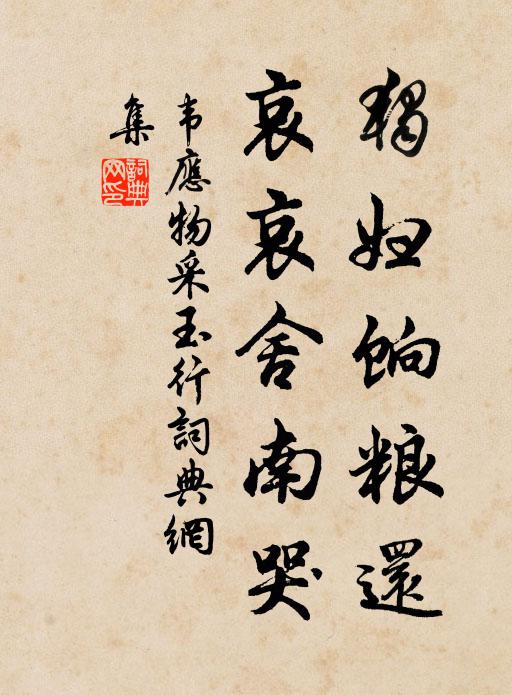 獨妇餉粮還
哀哀舍南哭
韦應物采玉行詞典網
集
詞典
网印